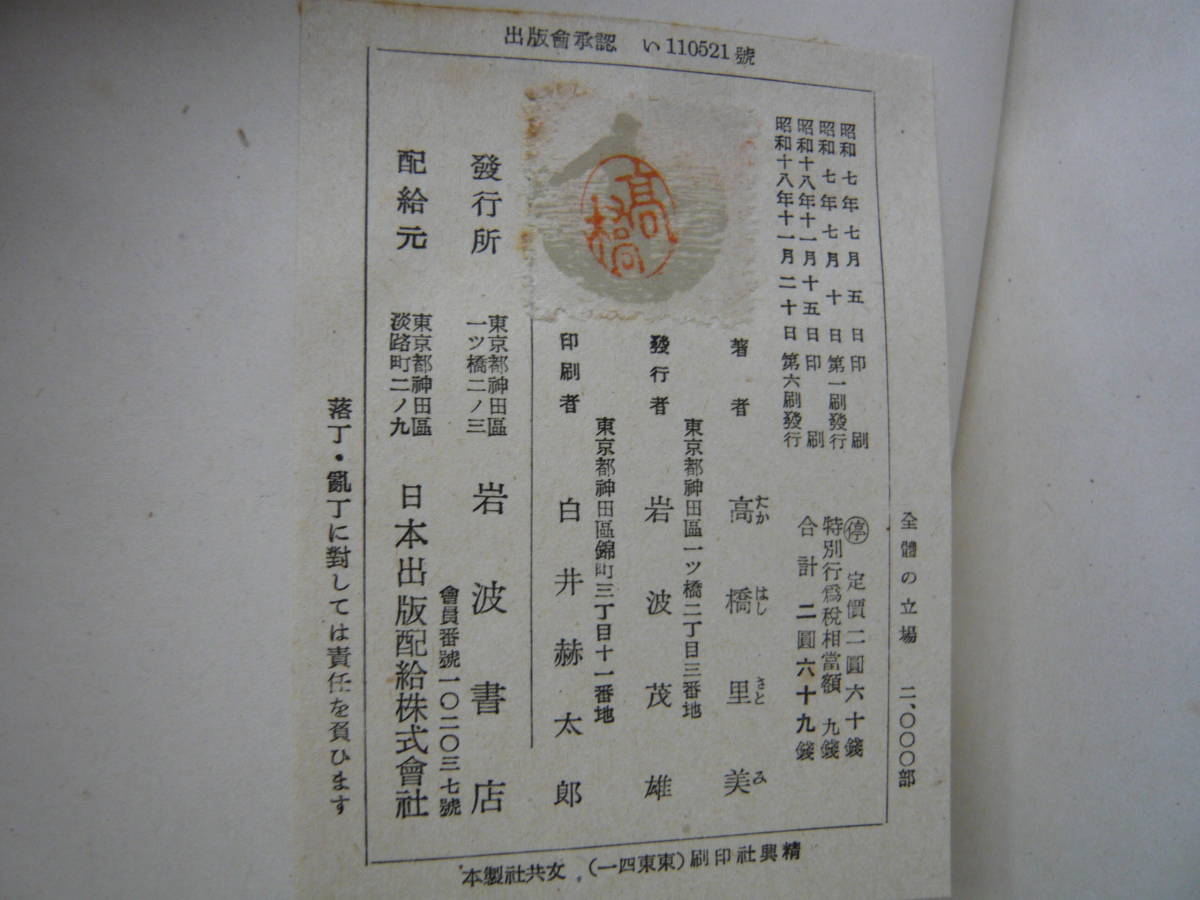 出版會承認 い110521號
全體の立場 二、〇〇〇部
昭和七年七月五日印刷
昭和七年七月十日第一刷發行
昭和十八年十一月十五日印刷
昭和十八年十一月二十日第六刷發行
停 定價二圓六十錢
特別行爲稅相當額 九錢
合計 二圓六十九錢
著者 高橋里美
たか はし さと み
東京都神田區一ツ橋二丁目三番地
發行者 岩波茂雄
東京都神田區錦町三丁目十一番地
印刷者 白井赫太郎
高橋
發行所 東京都神田區一ツ橋二ノ三 岩波書店
會員番號一〇二〇三七號
配給元 東京都神田區淡路町二ノ九 日本出版配給株式會社
落丁・亂丁に對しては責任を負ひます
精興社印刷(東東四一) 女共社製本